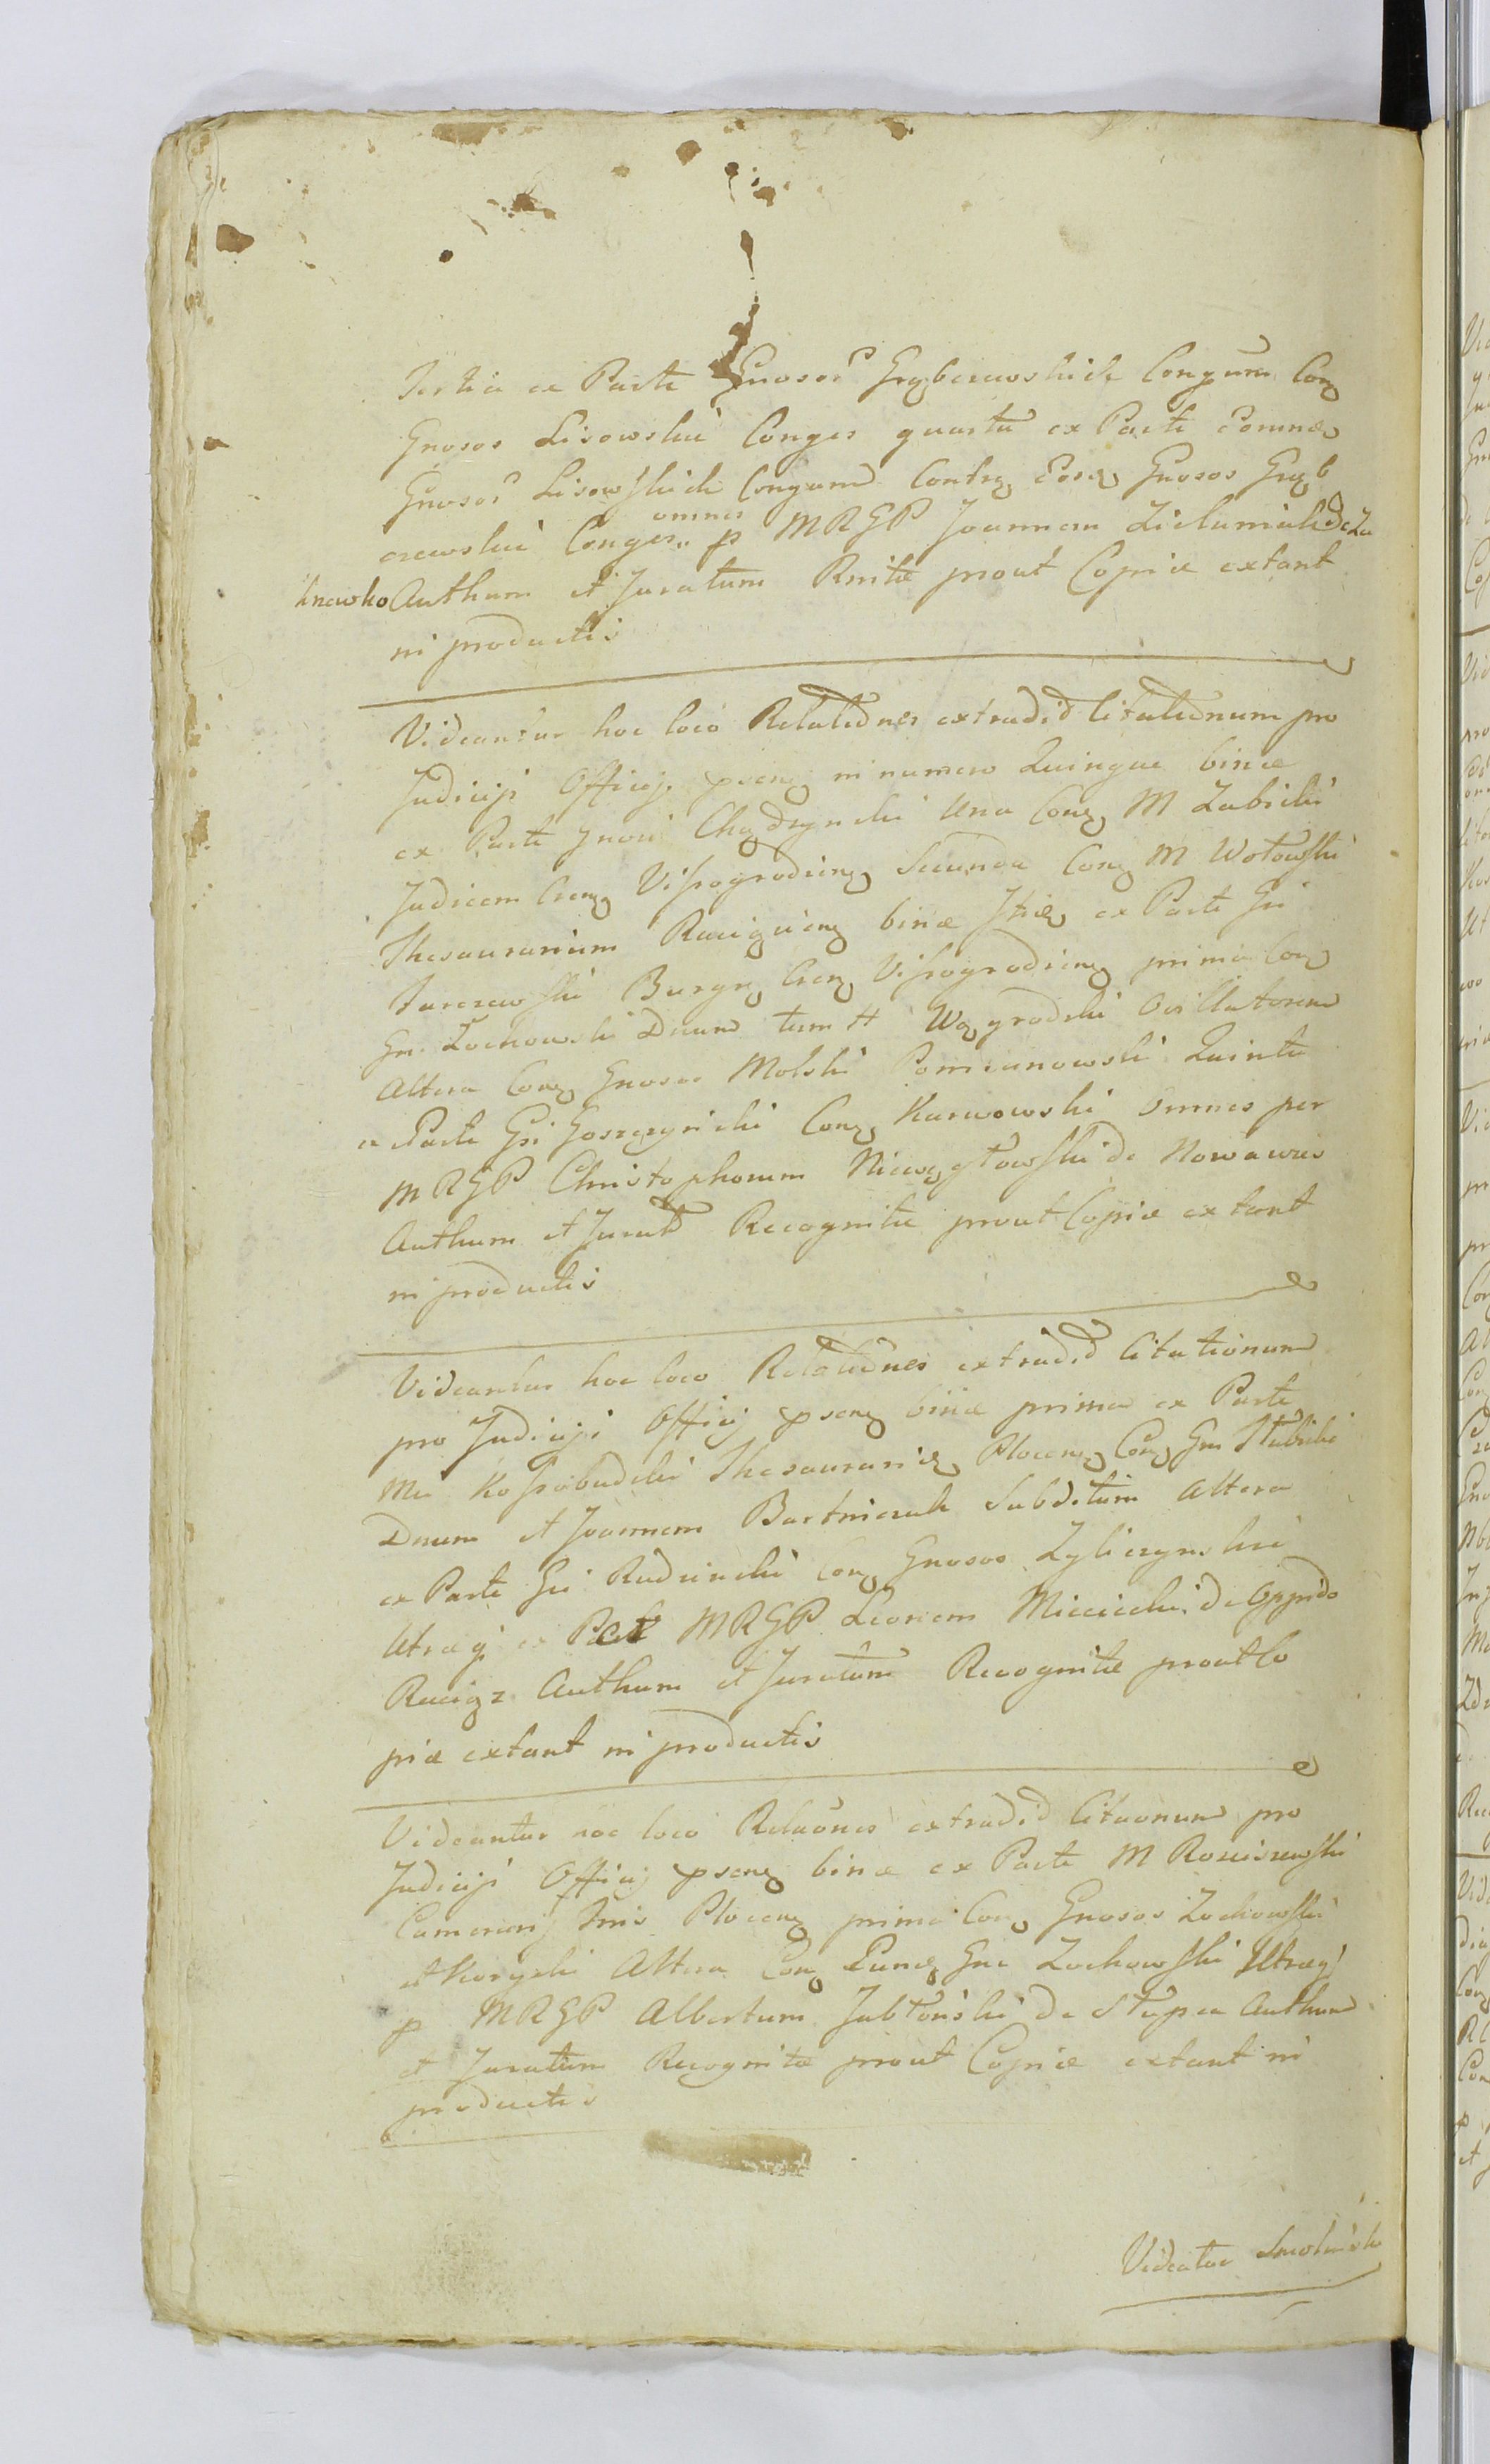 Tertia ex Parte Gnosor Grąbczewskich Congum Conq
Gnosos Lisowskii Conges quarta ex Parte Eorund
Gnosor Lisowskich Congum Contq Eosq Gnosos Grąb
czewskii Conges omnes p MRGP Joannem Zieluniak de Za
krzewko Authum et Juratum Rnitæ prout Copiæ extant
in productis
Videantur hoc loco Relationes extradit Citationum pro
Judicijs Officij psenq in numero Quinque binæ
ex Parte Gnosi Chądzynski Una Conq M Zabicki
Judicem Crenq Visogrodienq Secunda Conq M Wotowski
Thesaurarium Raciąziensq binæ ex Parte Gsi
Jurczewski Burgr Crenq Visogrodienq prima Conq
Gn Zochowski Dnum tum et Wągrodzki Oscillatorem
Altera Conq Gnosos Molski Pomianowski Quinta
ex Parte Gsi Goszczynski Conq Karwowski omnes per
MRGP Christophorum Niewęgłowski de Nowawies
Authum et Jurat Recognitæ prout Copiæ extant
in productis
Videantur hoc loco Relationes extradit Citationum
pro Judicijs Officij psenq binæ prima ex Parte
Mci Kossobudzki Thesaurarij Plocenq Conq Gn
Dnum et Joannem Bartniczak Subditum Altera
ex Parte Gsi Rudzinski Conq Gnosos Zyliczynskii
Utraq ex Parte MRGP Leonem Miecicki de Oppido
Raciąz Authum et Juratum Recognitæ prout Co
piæ extant in productis
Videantur hoc loco Relaones extradit Citaonum pro
Judicijs Officij psenq binæ ex Parte M Rosciszewski
Camerarij Tris Plocenq prima Conq Gnosos Zochowski
et Korycki Altera Conq Eundq Gn Zochowski Utraq
p MRGP Albertum Jabłonski de Stupca Authum
et Juratum Recognitæ prout Copiæ extant in
productis
Videatur